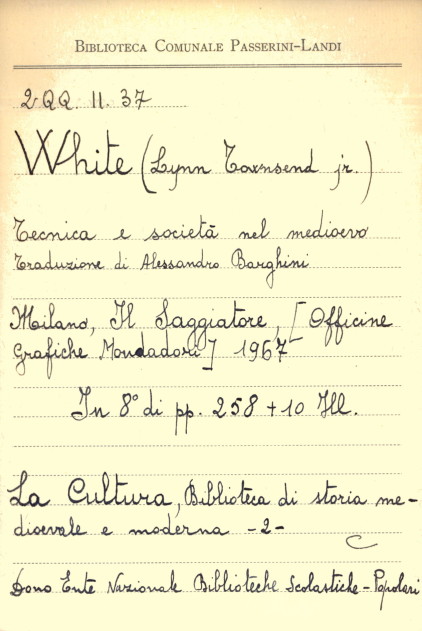 BIBLIOTECA COMUNALE PASSERINI-LANDI
2QQ. 11. 37
White (Lynn Townsend jr.)
Tecnica e società nel medioevo
Traduzione di Alessandro Barghini
Milano, Il Saggiatore, [Officine
Grafiche Mondadori] 1967
In 8° di pp. 258 + 10 Ill.
La Cultura, Biblioteca di storia me-
dioevale e moderna -2-
C
Dono Ente Nazionale Biblioteche Scolastiche-Popolari